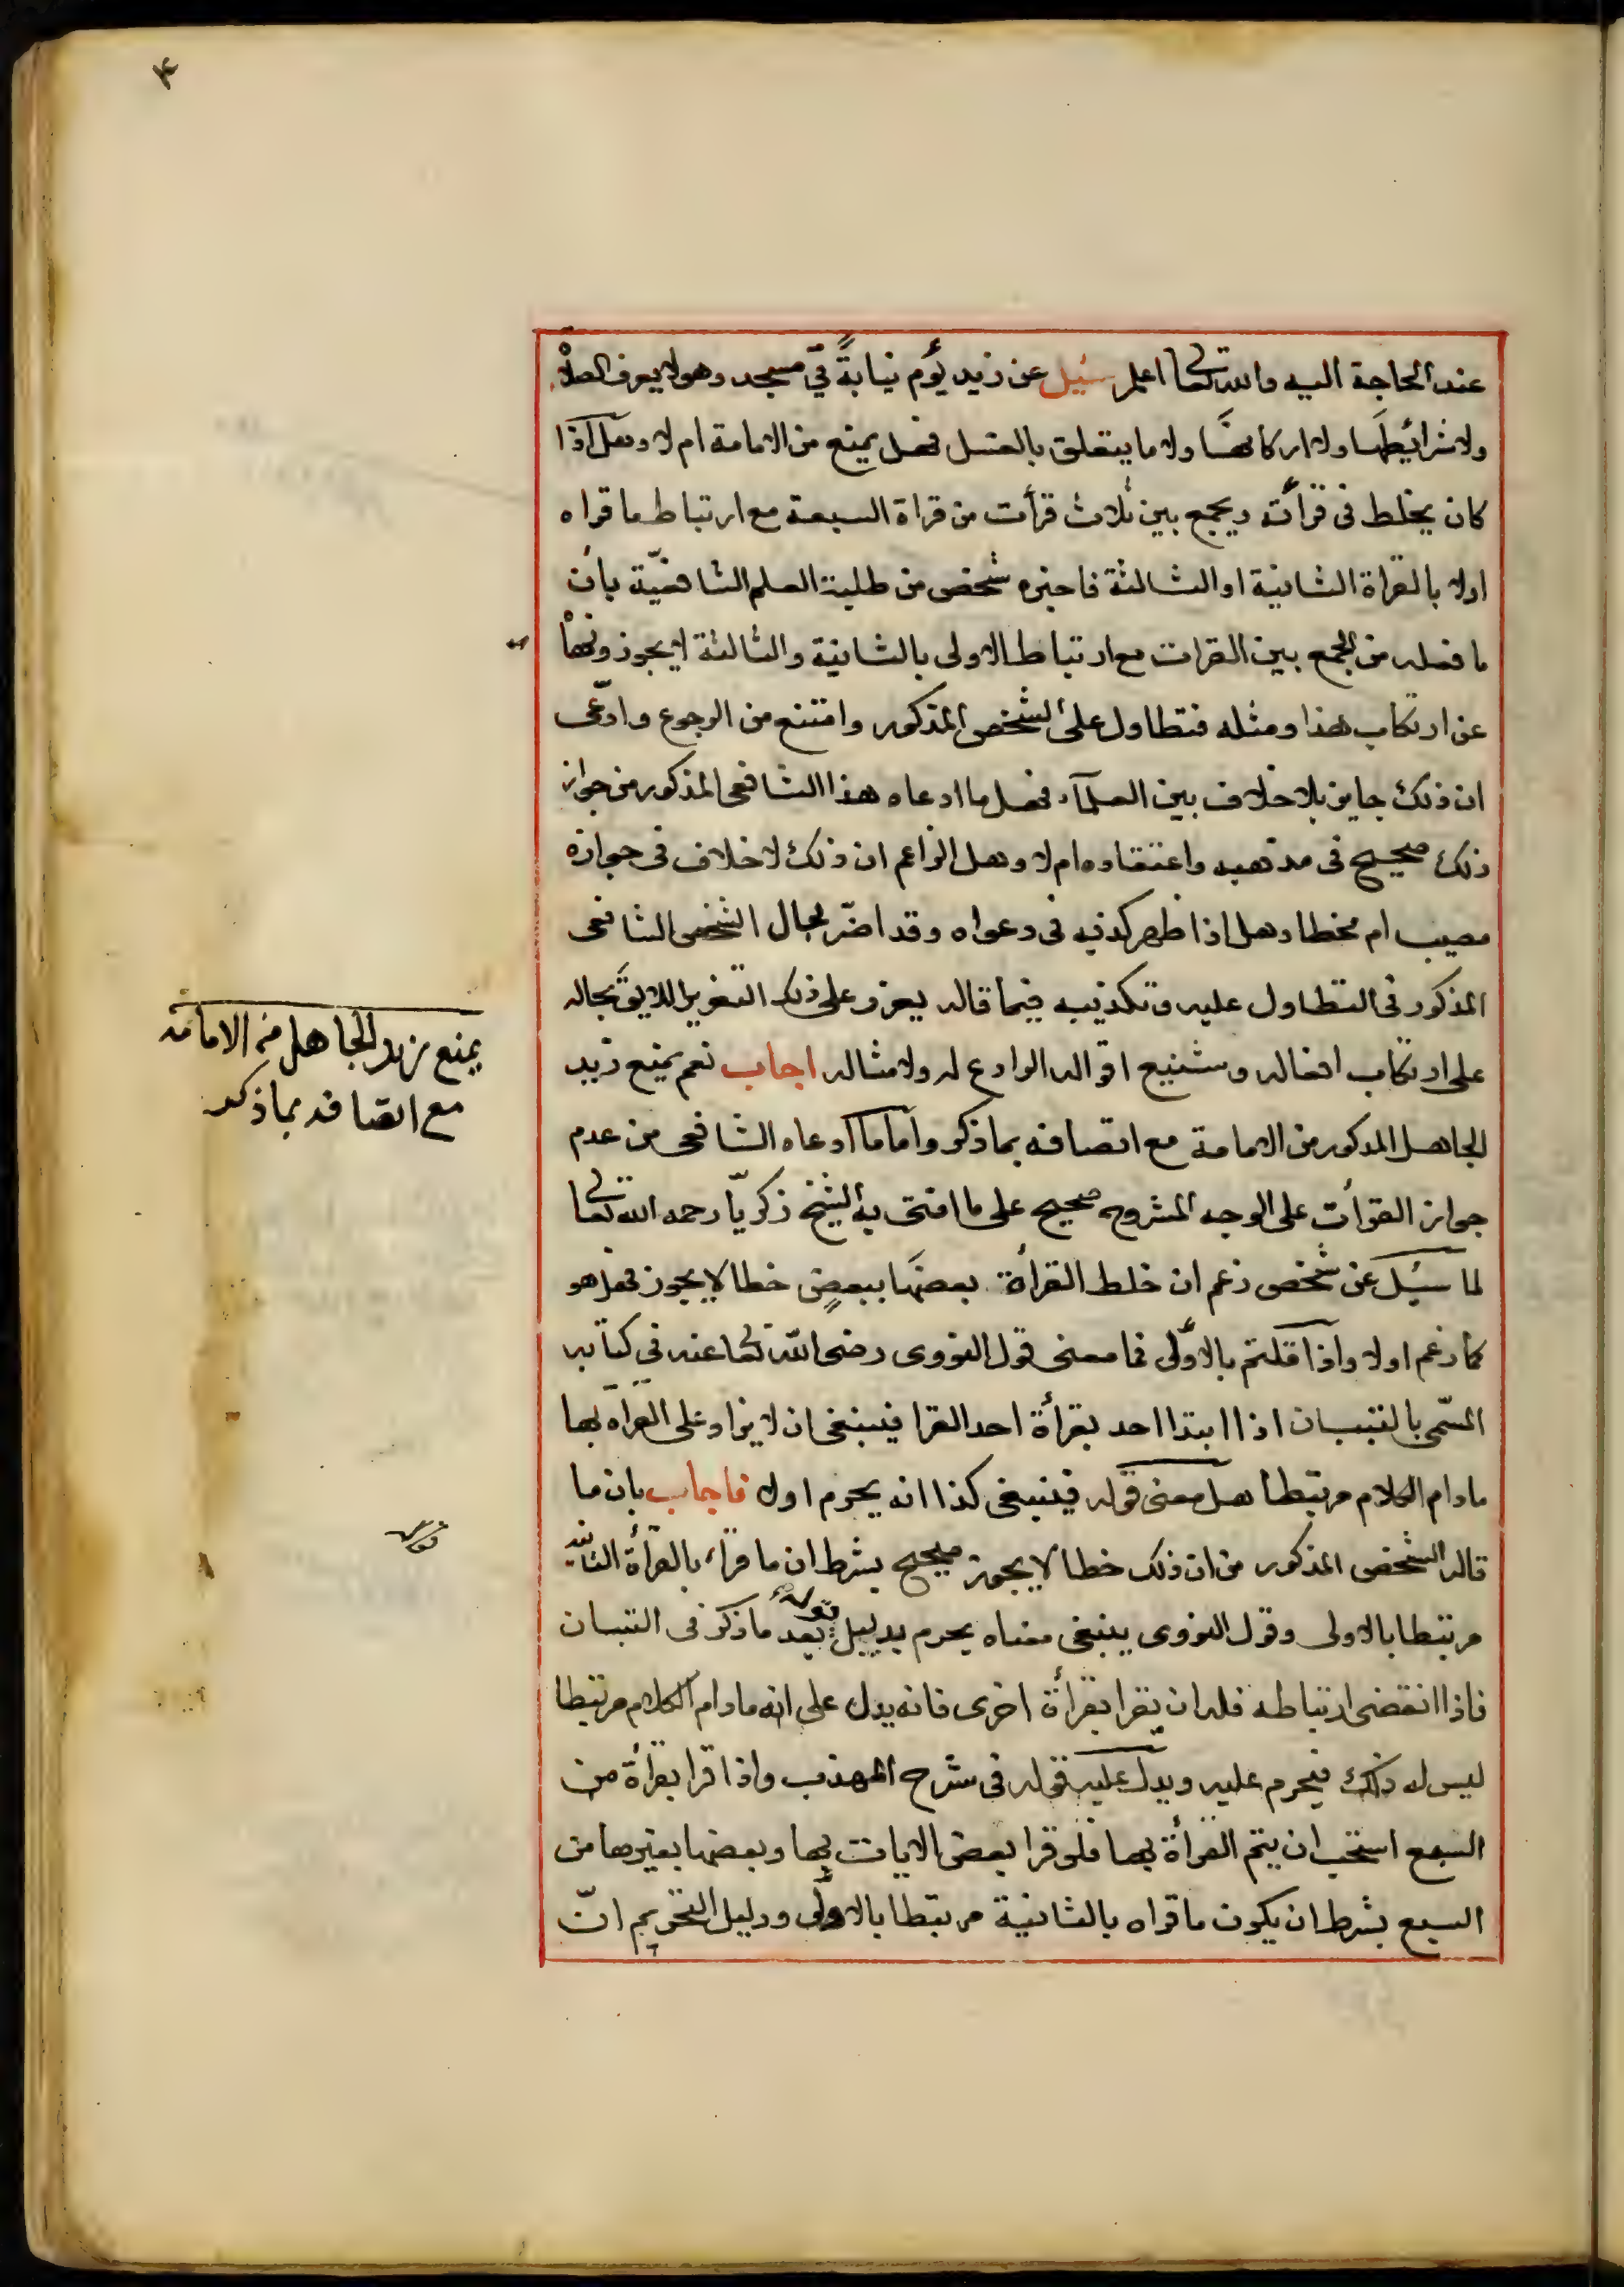 ٤
عند الحاجة اليه والله تعالى اعلم سئيل عن زيد يؤم نيابةً في مسجد وهو لا يعرف الصلاة
ولا شرائطها ولا اركانها ولا ما يتعلق بالغسل فهل يمنع من الامامة ام لا وهل اذا
كان يخلط فى قرأته ويجمع بين ثلاث قرأت من قراة السبعة مع ارتباط ما قراه
اولا بالقراة الثانية او الثالثة فاخبره شخص من طلبة العلم الشافعيّة بان
ما فعله من الجمع بين القرات مع ارتباط الاولى بالثانية والثالثة لا يجوز ونهاه
عن ارتكاب هذا ومثله فتطاول على الشخص المذكور وامتنع من الرجوع وادّعى
ان ذلك جايز بلا خلاف بين العلمآء فهل ما ادعاه هذا الشافعى المذكور من جواز
ذلك صحيح فى مذهبه واعتقاده ام لا وهل الزاعم ان ذلك لا خلاف فى جوازه
مصيب ام مخطا وهل اذا ظهر كذبه فى دعواه وقد اضّر بحال الشخص الشافعى
المذكور فى التطاول عليه وتكذيبه فيما قاله يعزر على ذلك التعزير اللايق بحاله
على ارتكاب افعاله وشنيع اقواله الوادع له ولامثاله اجاب نعم يمنع زيد
الجاهل المذكور من الامامة مع اتصافه بما ذكر واما ما ادعاه الشافعى من عدم
جواز القرأت على الوجه المشروح صحيح على ما افتى به الشيخ زكريّا رحمه الله تعالى
لما سئيل عن شخص زعم ان خلط القرأة بعضها ببعضٍ خطا لا يجوز فهل هو
كما زعم اولا واذا قلتم بالاوّلى فما معنى قول النووى رضى الله تعالى عنه فى كتابه
المسّمى بالتبيان اذا ابتدا احد بقرأة احد القرا فينبغى ان لا يزاد على القراة بها
ما دام الكلام مرتبطا هل معنى قوله فينبغى كذا انه يحرم اولا فاجاب بان ما
قاله الشخص المذكور من ان ذلك خطا لا يجوز صحيح بشرط ان ما قراه بالقرأة الثانية
مرتبطا بالاولى وقول النووى ينبغى معناه يحرم بدليل قوله بعد ما ذكر فى التبيان
فاذا انقضى ارتباطه فله ان يقرا بقرأة اخرى فانه يدل على انه ما دام الكلام مرتبطا
ليس له ذلك فيحرم عليه ويدل عليه قوله فى شرح المهذب واذا قرا بقرأة من
السبع استحب ان يتم القرأة بها فلو قرا بعض الايات بها وبعضها بغيرها من
السبع بشرط ان يكون ما قراه بالثانية مرتبطا بالاولى ودليل التحريم انّ
يمنع زيد الجاهل من الامامة
مع اتصافه بما ذكر
قوله